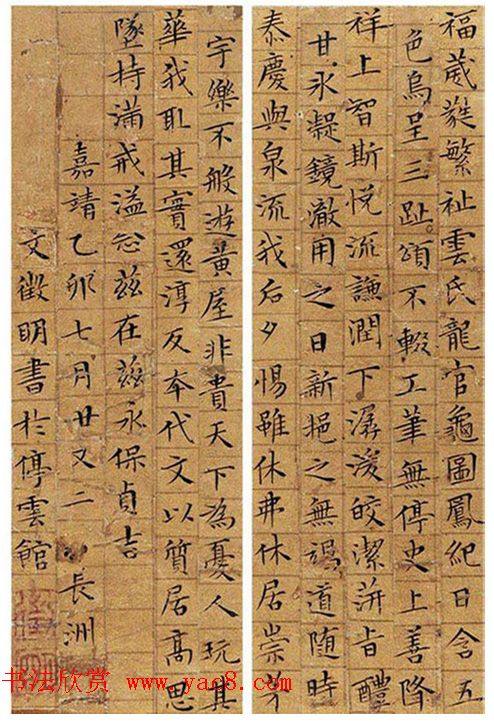 福葳蕤繁祉雲氏龍官龜圖鳳紀日含五
色烏呈三趾頌不輟工筆無停史上善降
祥上智斯悅流謙潤下潺湲皎潔蓱旨醴
甘氷凝鏡澈用之日新挹之無竭道隨時
泰慶與泉流我后夕惕雖休弗休居崇茅
宇樂不般遊黃屋非貴天下為憂人玩其
華我取其實還淳反夲代文以質居高思
墜持滿戒溢念茲在茲永保貞吉
嘉靖乙卯七月廿又二日長洲
文徵明書於停雲館
书法欣赏 www.yac8.com